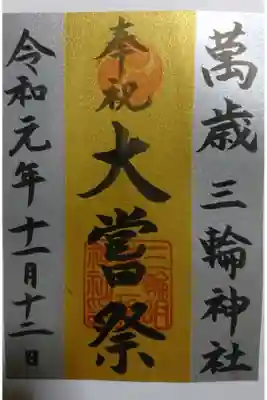 萬歳三輪神社
奉祝
大嘗祭
令和元年十一月十二日